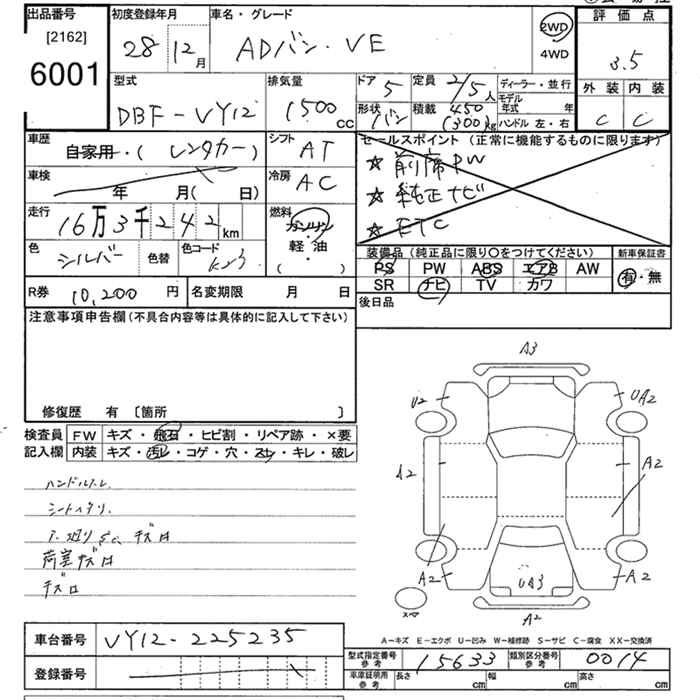 出品番号
[2162]
6001
初度登録年月
28 12月
車名・グレード
ADバン・VE
2WD
4WD
評価点
3.5
外装 内装
C C
型式
DBF-VY12
排気量
1500cc
ドア 5
形状 バン
定員 2/5人
積載 450(300)kg
ディーラー・並行
モデル年式 年
ハンドル 左・右
車歴
自家用・(レンタカー)
シフト AT
車検
年 月( 日)
冷房 AC
走行
16万3千242km
燃料
ガソリン
・
軽油
( )
色 シルバー 色替 色コード K23
セールスポイント (正常に機能するものに限ります)
★前席PW
★純正ナビ
★ETC
装備品(純正品に限り〇をつけてください)
PS PW ABS エアB AW
SR ナビ TV カワ
新車保証書
有・無
R券 10,200円 名変期限 月 日
後日品
注意事項申告欄(不具合内容等は具体的に記入して下さい)
修復歴 有 〔箇所 〕
検査員 記入欄
FW キズ・飛石・ヒビ割・リペア跡・×要
内装 キズ・汚レ・コゲ・穴・スレ・キレ・破レ
ハンドルスレ
シートヘタリ
キズロ
荷室キズロ
キズロ
A3
U2
UA2
A2
A2
A2
A2
UA3
A2
A-キズ E-エクボ U-凹み W-補修跡 S-サビ C-腐食 XX-交換済
車台番号 VY12-225235
登録番号
型式指定番号 参考 15633
類別区分番号 参考 0014
車庫証明用 参考 長さ cm 幅 cm 高さ cm